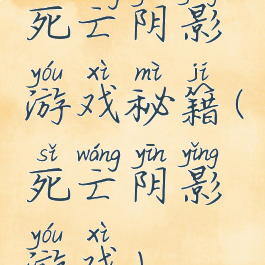 死亡阴影
yóu xì mì jí
游戏秘籍(
sǐ wáng yīn yǐng
死亡阴影
yóu xì
游戏)